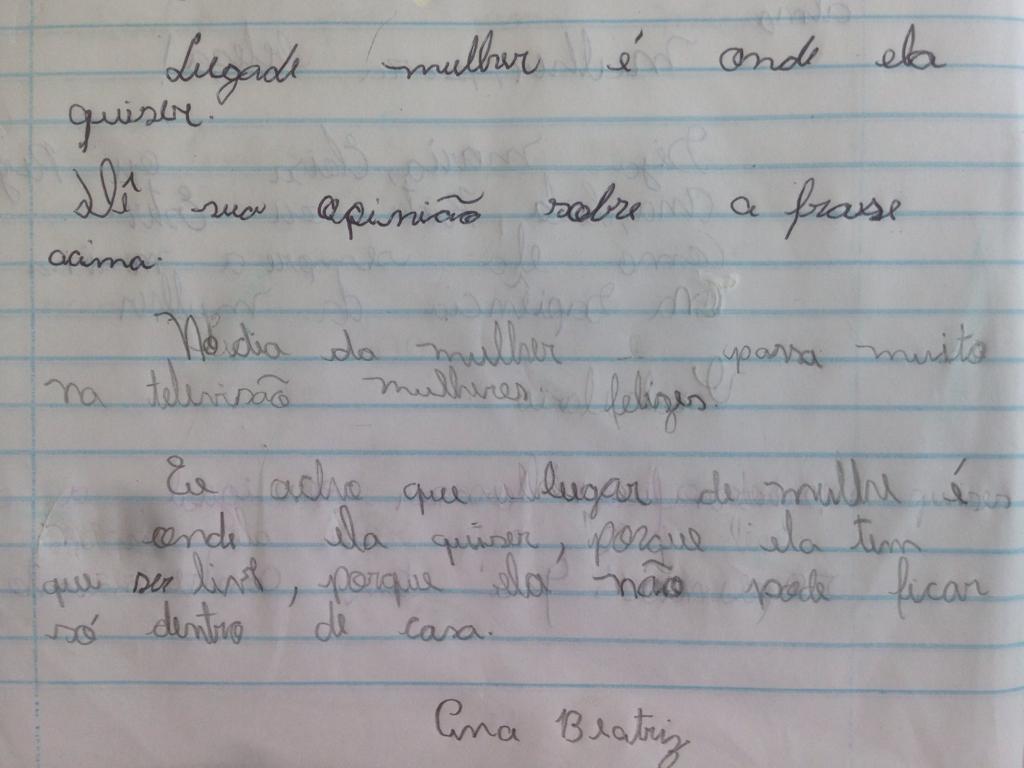 Lugade mulher é onde ela
quiser.
Dê sua opinião sobre a frase
acima.
No dia da mulher passa muito
na televisão mulheres felizes.
Eu acho que lugar de mulhe é
onde ela quiser, porque ela tem
que ser livre, porque ela não pode ficar
só dentro de casa.
Ana Beatriz